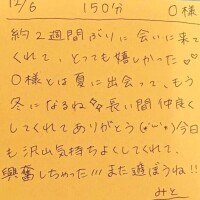 12/6 150分 O様
約2週間ぶりに会いに来て
くれて、とっても嬉しかった♡
O様とは夏に出会って、もう
冬になるね✨長い間仲良く
してくれてありがとう(*'ω'*)今日
も沢山気持ちよくしてくれて、
興奮しちゃった!!!また遊ぼうね!!
みと